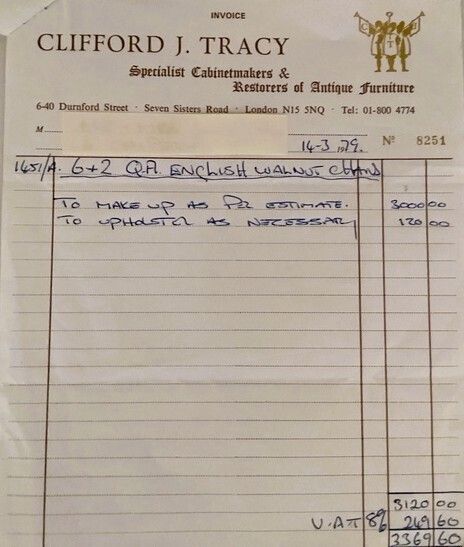 INVOICE
CLIFFORD J. TRACY
Specialist Cabinetmakers &
Restorers of Antique Furniture
6-40 Durnford Street · Seven Sisters Road · London N15 5NQ · Tel: 01-800 4774
M
14-3 1979. Nº 8251
1451/A. 6+2 Q.A. ENGLISH WALNUT CHAIRS
TO MAKE UP AS PER ESTIMATE. 3000 00
TO UPHOLSTER AS NECESSARY 120 00
3120 00
V.A.T 8% 249 60
3369 60